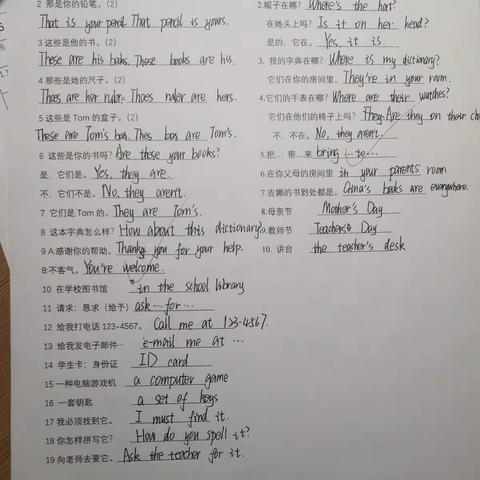 2 那是你的铅笔。(2)
That is your pencil. That pencil is yours.
3 这些是他的书。(2)
These are his books. These books are his.
4 那些是她的尺子。(2)
Thoes are her ruler. Thoes ruler are hers.
5 这些是 Tom 的盒子。(2)
These are Tom's box. Thes box are Tom's.
6 这些是你的书吗? Are those your books?
是, 它们是。 Yes, they are.
不, 它们不是。 No, they aren't.
7 它们是 Tom 的。 They are Tom's.
8 这本字典怎么样? How about this dictionary?
9 A:感谢你的帮助。 Thank you for your help.
B:不客气。 You're welcome.
10 在学校图书馆 in the school library
11 请求; 恳求 (给予) ask … for …
12 给我打电话 123-4567。 Call me at 123-4567.
13 给我发电子邮件… e-mail me at …
14 学生卡; 身份证 ID card
15 一种电脑游戏机 a computer game
16 一套钥匙 a set of keys
17 我必须找到它。 I must find it.
18 你怎样拼写它? How do you spell it?
19 向老师去要它。 Ask the teacher for it.
2.帽子在哪? Where's the hat?
在她头上吗? Is it on her head?
是的, 它在。 Yes, it is.
3. 我的字典在哪? Where is my dictionary?
它们在你的房间里。 They're in your room.
4.它们的手表在哪? Where are their watches?
它们在他们的椅子上吗? They Are they on their
不, 不在。 No, they aren't.
5.把…带…来 bring … to …
6.在你父母的房间里 in your parents' room
7.吉娜的书到处都是。 Gina's books are everywhere.
8.母亲节 Mother's Day
9.教师节 Teachers' Day
10. 讲台 the teacher's desk